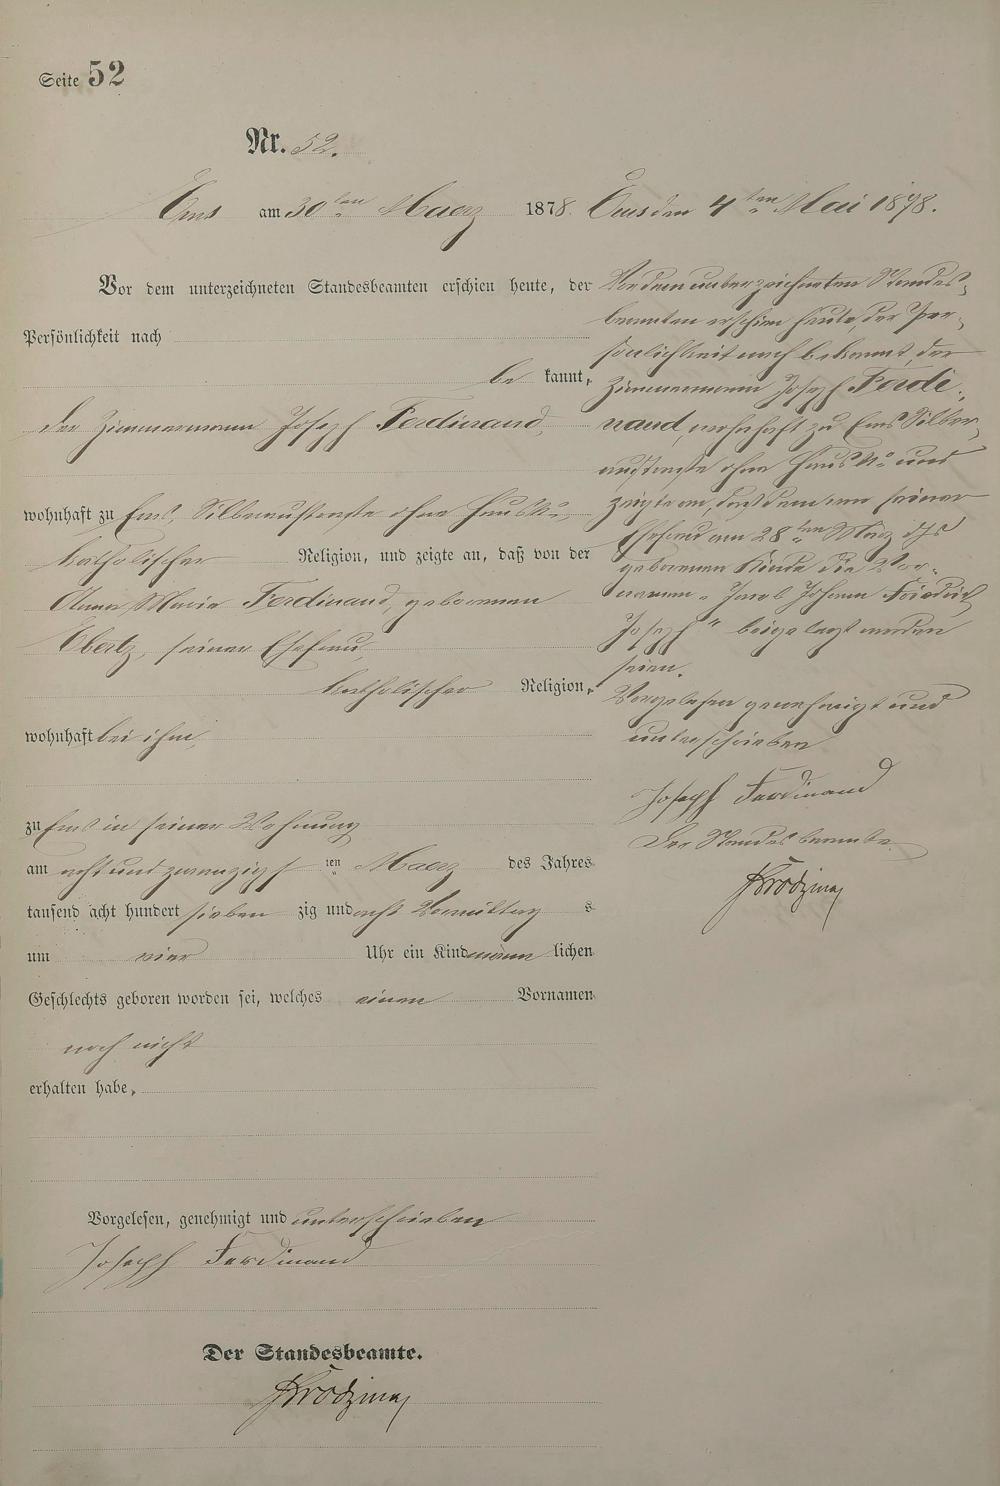 Seite 52
Nr. 52.
Ems am 30ten Maerz 1878.
Vor dem unterzeichneten Standesbeamten erschien heute, der
Persönlichkeit nach
be kannt,
der Zimmermann Joseph Ferdinand,
wohnhaft zu Ems, Silberaustraße ohne Haus No,
katholischer Religion, und zeigte an, daß von der
Anna Maria Ferdinand, geborenen
Ebertz, seiner Ehefrau,
katholischer Religion,
wohnhaft bei ihm,
zu Ems in seiner Wohnung
am acht und zwanzigs ten Maerz des Jahres
tausend acht hundert sieben zig und acht Vormittag s
um vier Uhr ein Kind männ lichen
Geschlechts geboren worden sei, welches einen Vornamen
noch nicht
erhalten habe,
Vorgelesen, genehmigt und unterschrieben
Joseph Ferdinand
Der Standesbeamte.
Ems den 4ten Mai 1878.
Vor dem unterzeichneten Standes-
beamten erschien heute, der Per-
sönlichkeit nach bekannt, der
Zimmermann Joseph Ferdi-
nand, wohnhaft zu Ems Silber-
austraße ohne Haus No und
zeigte an, daß dem von seiner
Ehefrau am 28ten März
geborenen Kinde die Vor-
namen "Jacob Johann Friedrich
Joseph" beigelegt worden
seien.
Vorgelesen genehmigt und
unterschrieben
Joseph Ferdinand
Der Standesbeamte